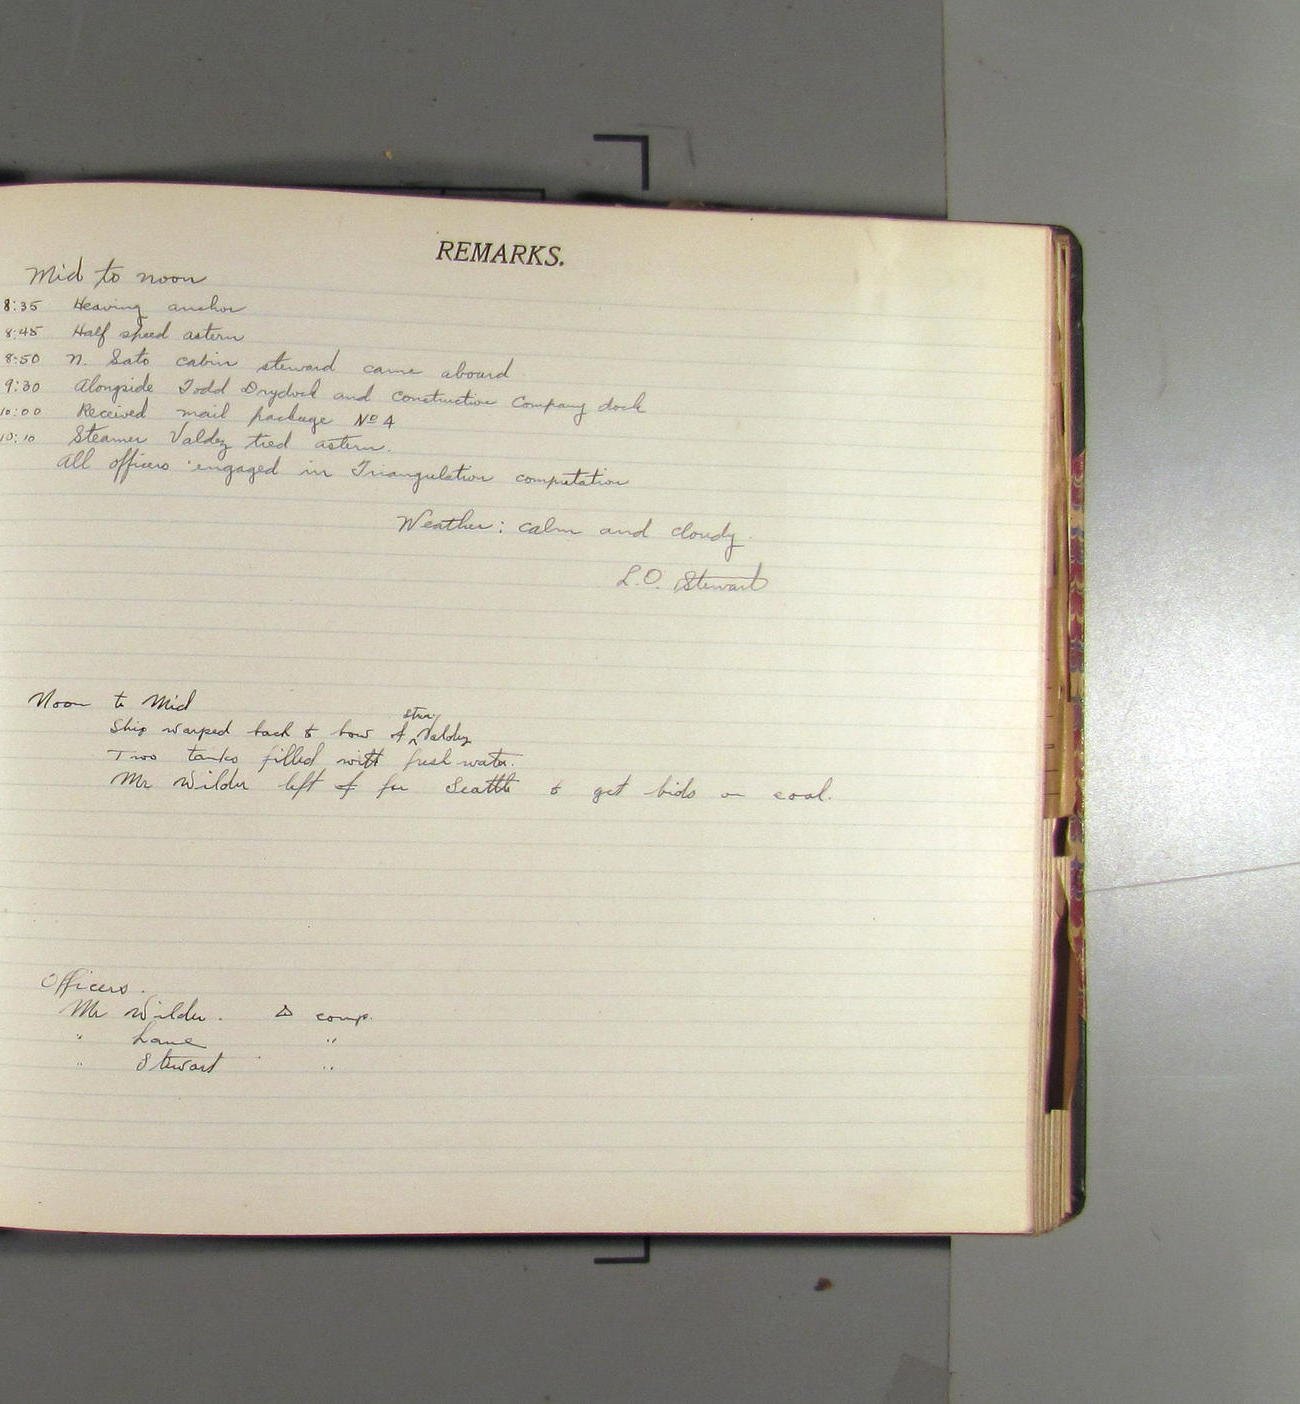 REMARKS.
Mid to noon
8:35 Heaving anchor
8:45 Half speed astern
8:50 N. Sato cabin steward came aboard
9:30 Alongside Todd Drydock and Construction Company dock
10:00 Received mail package No 4
10:10 Steamer Valdez tied astern.
All officers engaged in Triangulation computation
Weather: calm and cloudy.
L.O. Stewart
Noon to Mid
Ship warped back to bow of str. Valdez
Two tanks filled with fresh water.
Mr Wilder left for Seattle to get bids on coal.
Officers.
Mr Wilder. △ comp.
" Lane "
" Stewart "